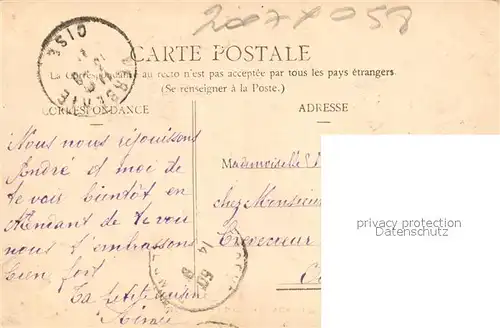 2007X058
CARTE POSTALE
La Correspondance au recto n'est pas acceptée par tous les pays étrangers
(Se renseigner à la Poste.)
CORRESPONDANCE
ADRESSE
Nous nous réjouissons
André et moi de
te voir bientôt, en
Attendant de te voir
nous t'embrassons
bien fort
Ta petite cousine
Aimée
Mademoiselle
chez Monsieur
Crèvecoeur
OISE
14
09
privacy protection
Datenschutz